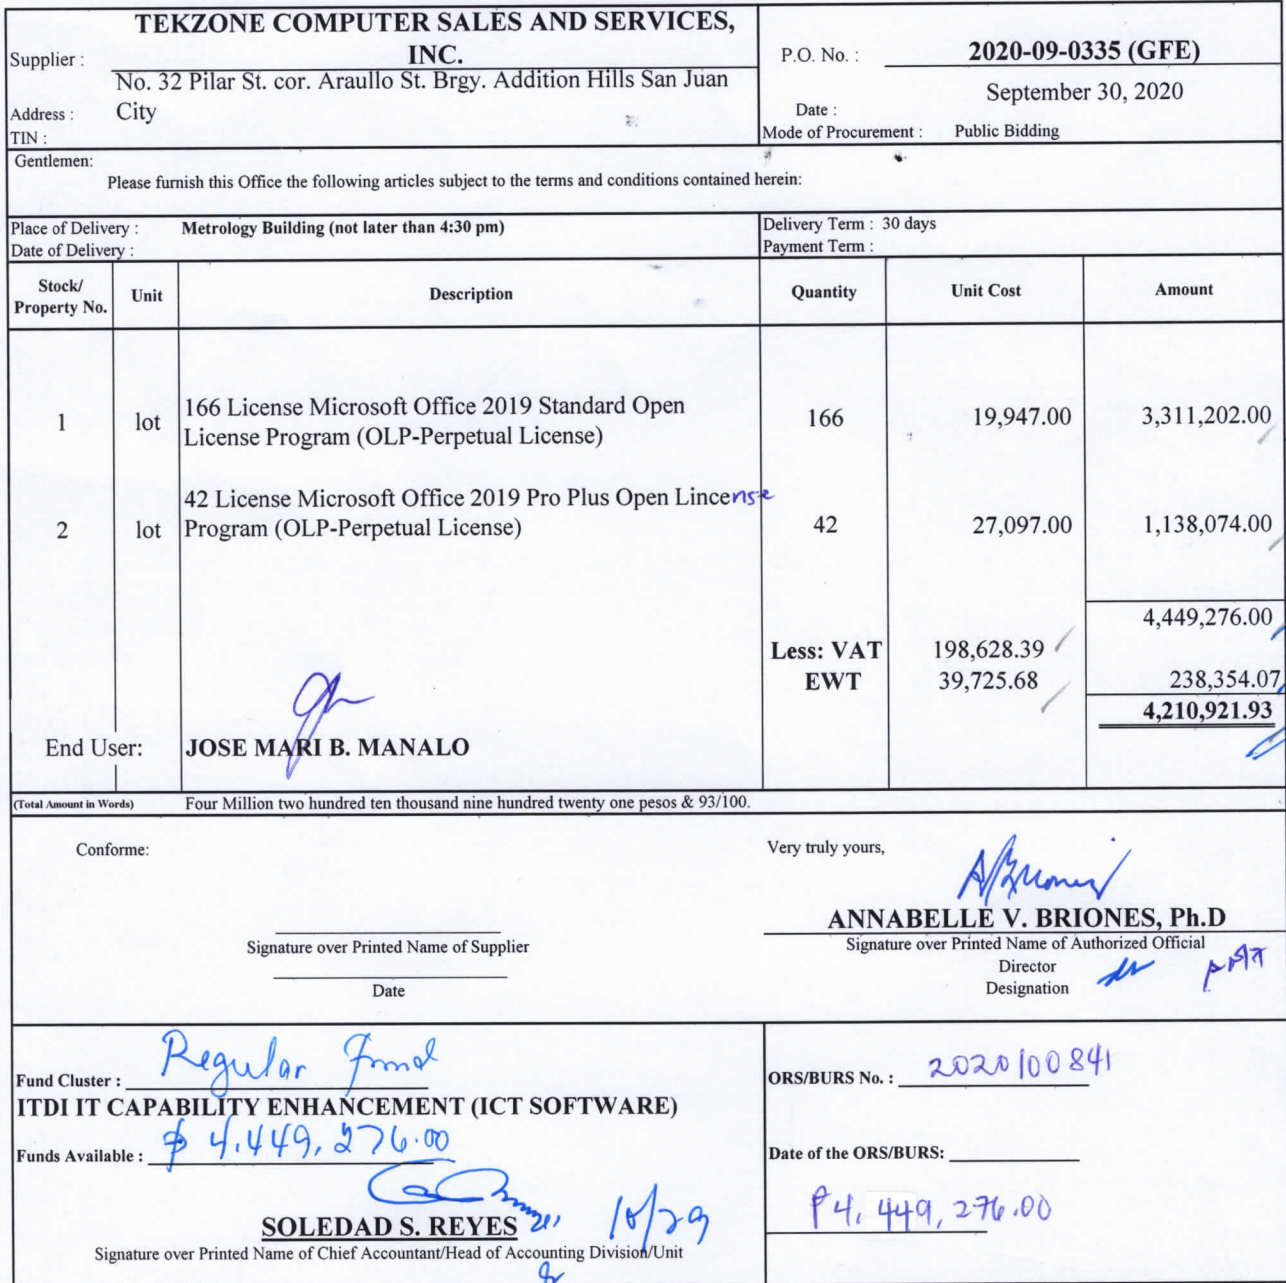 TEKZONE COMPUTER SALES AND SERVICES,
Supplier : INC.
No. 32 Pilar St. cor. Araullo St. Brgy. Addition Hills San Juan
Address : City
TIN :
P.O. No. : 2020-09-0335 (GFE)
September 30, 2020
Date :
Mode of Procurement : Public Bidding
Gentlemen:
Please furnish this Office the following articles subject to the terms and conditions contained herein:
Place of Delivery : Metrology Building (not later than 4:30 pm)
Date of Delivery :
Delivery Term : 30 days
Payment Term :
Stock/ Property No. Unit Description Quantity Unit Cost Amount
166 License Microsoft Office 2019 Standard Open
1 lot License Program (OLP-Perpetual License) 166 19,947.00 3,311,202.00
42 License Microsoft Office 2019 Pro Plus Open Lincense
2 lot Program (OLP-Perpetual License) 42 27,097.00 1,138,074.00
4,449,276.00
Less: VAT 198,628.39
EWT 39,725.68 238,354.07
4,210,921.93
End User: JOSE MARI B. MANALO
(Total Amount in Words) Four Million two hundred ten thousand nine hundred twenty one pesos & 93/100.
Conforme:
Signature over Printed Name of Supplier
Date
Very truly yours,
ANNABELLE V. BRIONES, Ph.D
Signature over Printed Name of Authorized Official
Director
Designation
Fund Cluster : Regular Fund
ITDI IT CAPABILITY ENHANCEMENT (ICT SOFTWARE)
Funds Available : ₱ 4,449,276.00
SOLEDAD S. REYES 10/29
Signature over Printed Name of Chief Accountant/Head of Accounting Division/Unit
ORS/BURS No. : 2020100841
Date of the ORS/BURS:
₱4,449,276.00